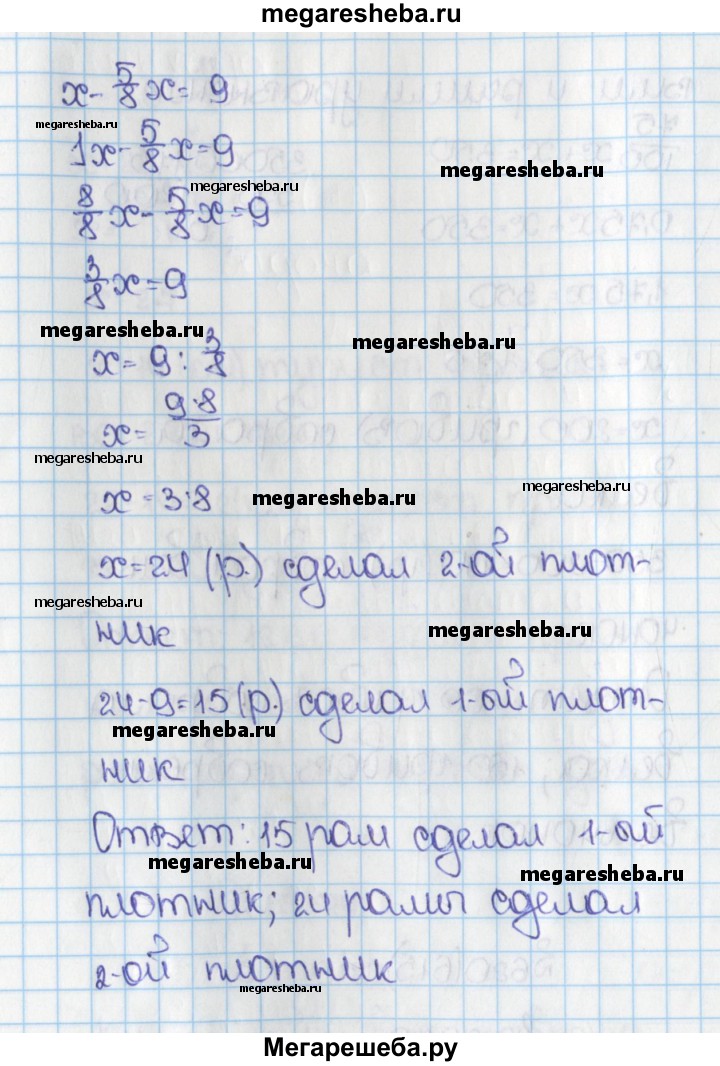 megaresheba.ru
x - 5/8 x = 9
megaresheba.ru
1x - 5/8 x = 9
megaresheba.ru
megaresheba.ru
8/8 x - 5/8 x = 9
3/8 x = 9
megaresheba.ru
megaresheba.ru
x = 9 : 3/8
x = 9·8/3
megaresheba.ru
megaresheba.ru
x = 3·8
megaresheba.ru
x = 24 (р.) сделал 2-ой плот-
megaresheba.ru
ник
megaresheba.ru
24-9=15(р.) сделал 1-ый плот-
megaresheba.ru
ник
Ответ: 15 рам сделал 1-ый
megaresheba.ru
megaresheba.ru
плотник; 24 рамы сделал
2-ой плотник
megaresheba.ru
Мегарешеба.ру